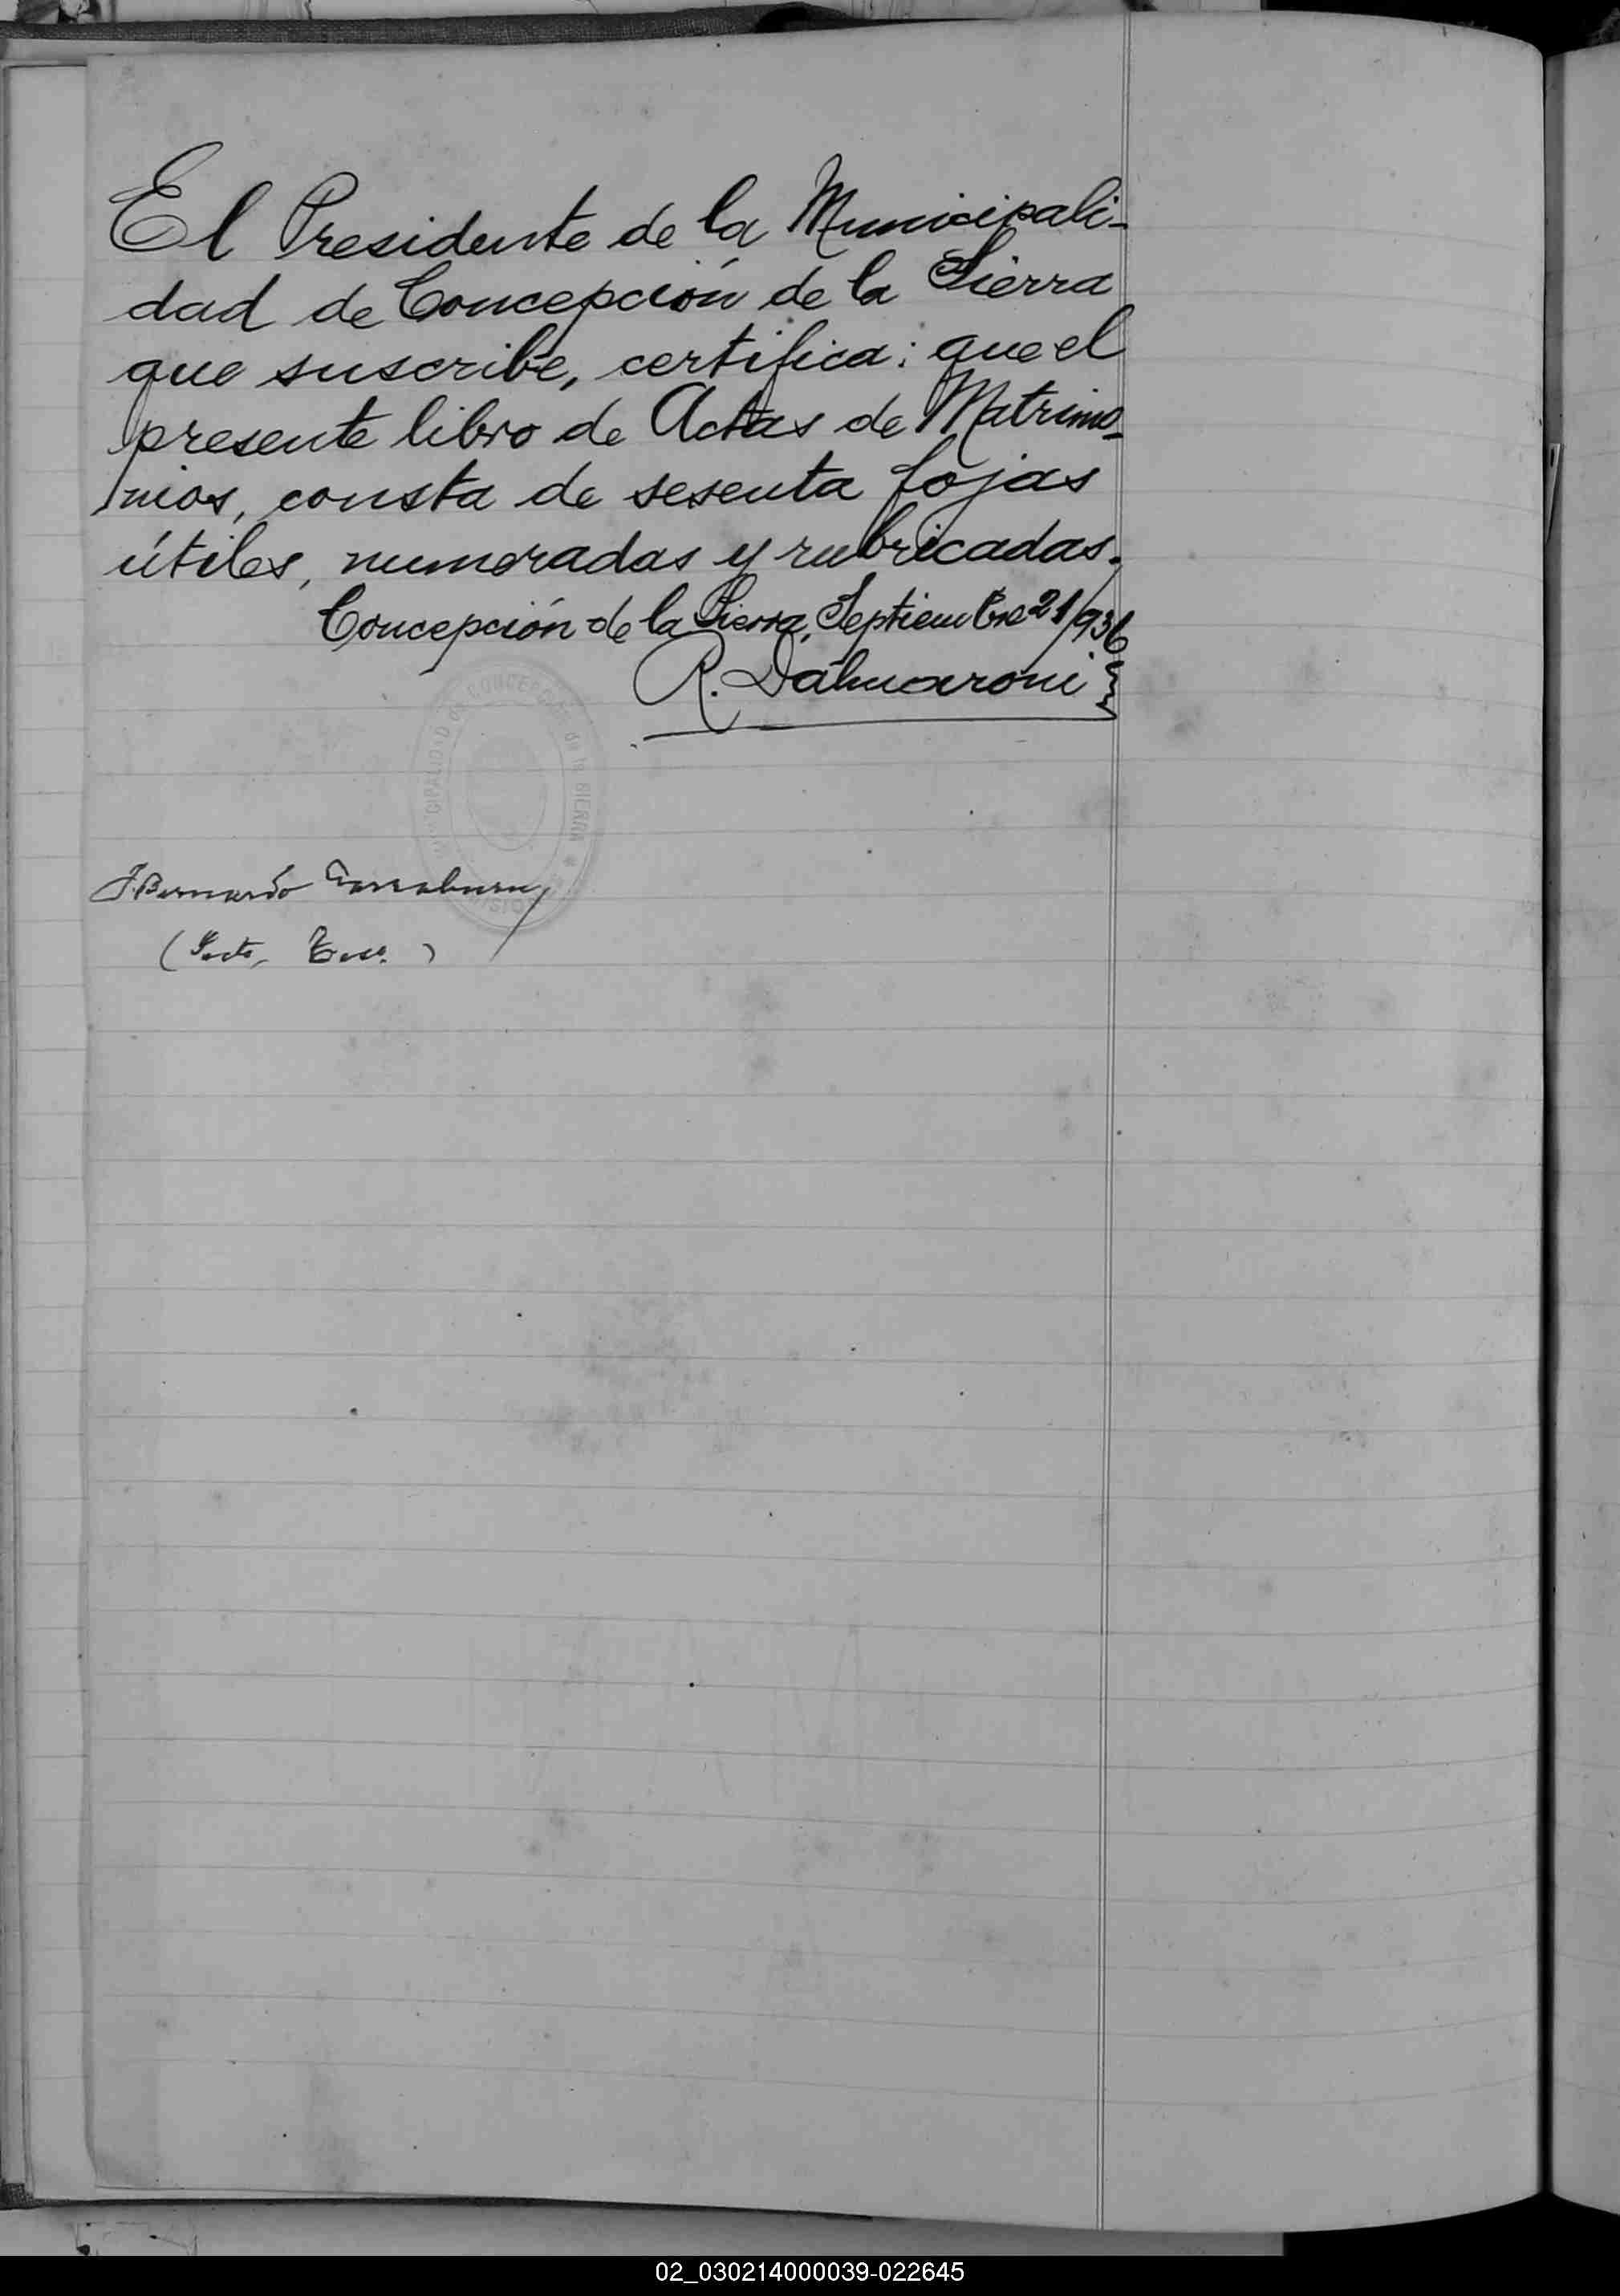 El Presidente de la Municipali-
dad de Concepción de la Sierra
que suscribe, certifica: que el
presente libro de Actas de Matrimo-
nios, consta de sesenta fojas
útiles, numeradas y rubricadas.
Concepción de la Sierra, Septiembre 21/936
R. Dalmaroni
CONCEPCION de la SIERRA
J. Bernardo
02_030214000039-022645